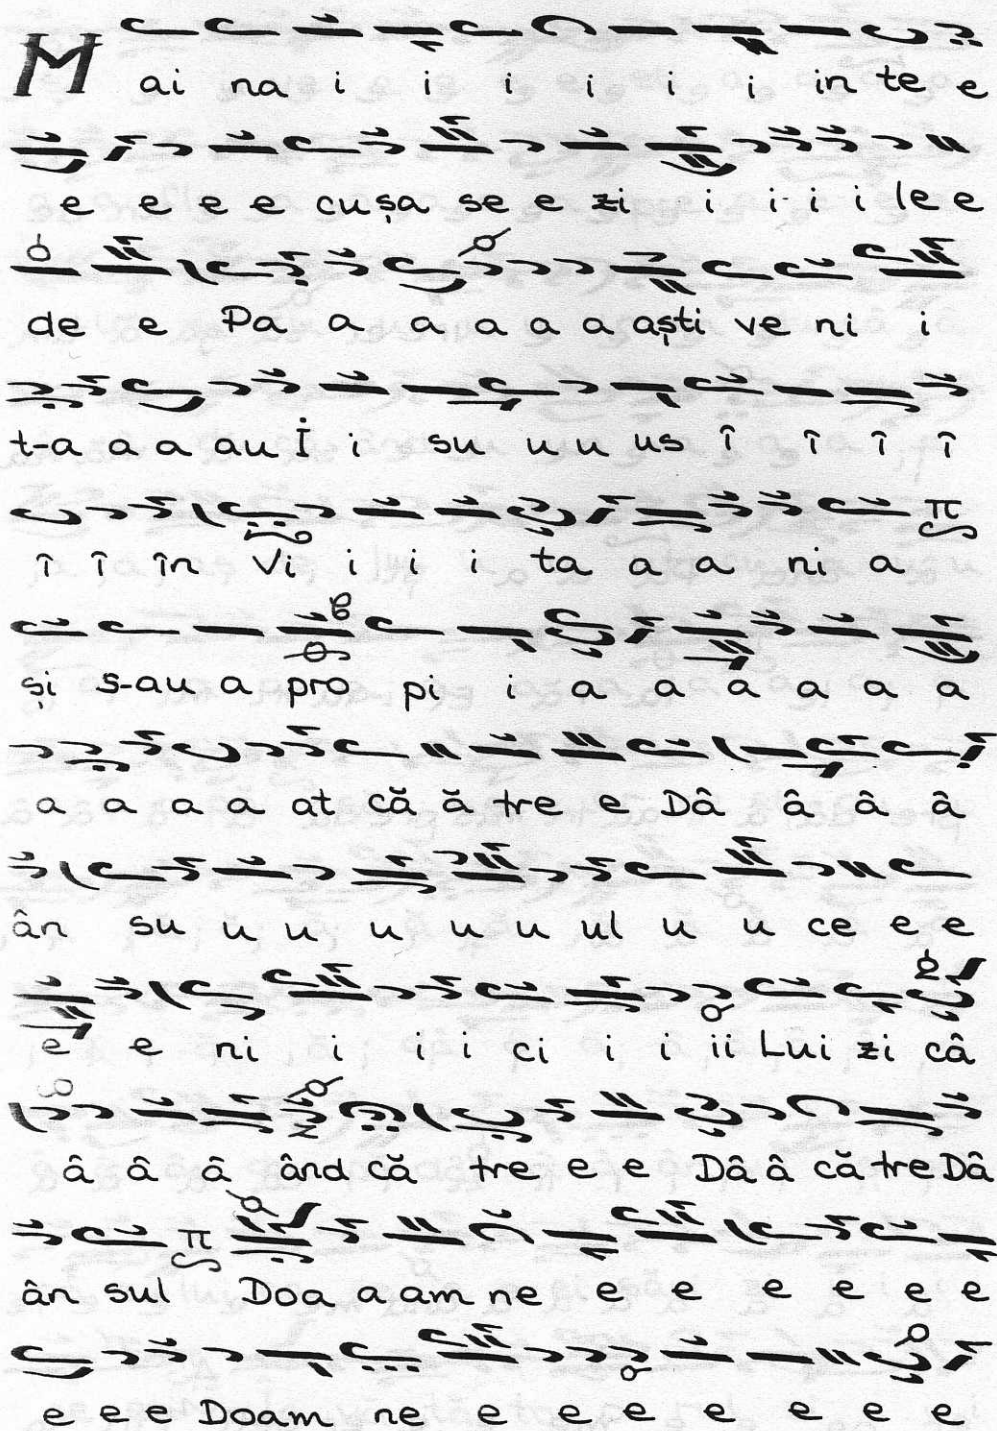 M ai na i i i i i i in te e
e e e e cu șa se e zi i i i i le e
de e Pa a a a a a aști ve ni i
t-a a a au İ i su u u us î î î î
î î în Vi i i i ta a a ni a
și s-au a pro pi i a a a a a a
a a a a at că ă tre e Dâ â â â
ân su u u u u u ul u u ce e e
e e ni i i i ci i i ii Lui zi câ
â â â ând că tre e e Dâ â că tre Dâ
ân sul Doa a am ne e e e e e e
e e e Doam ne e e e e e e e